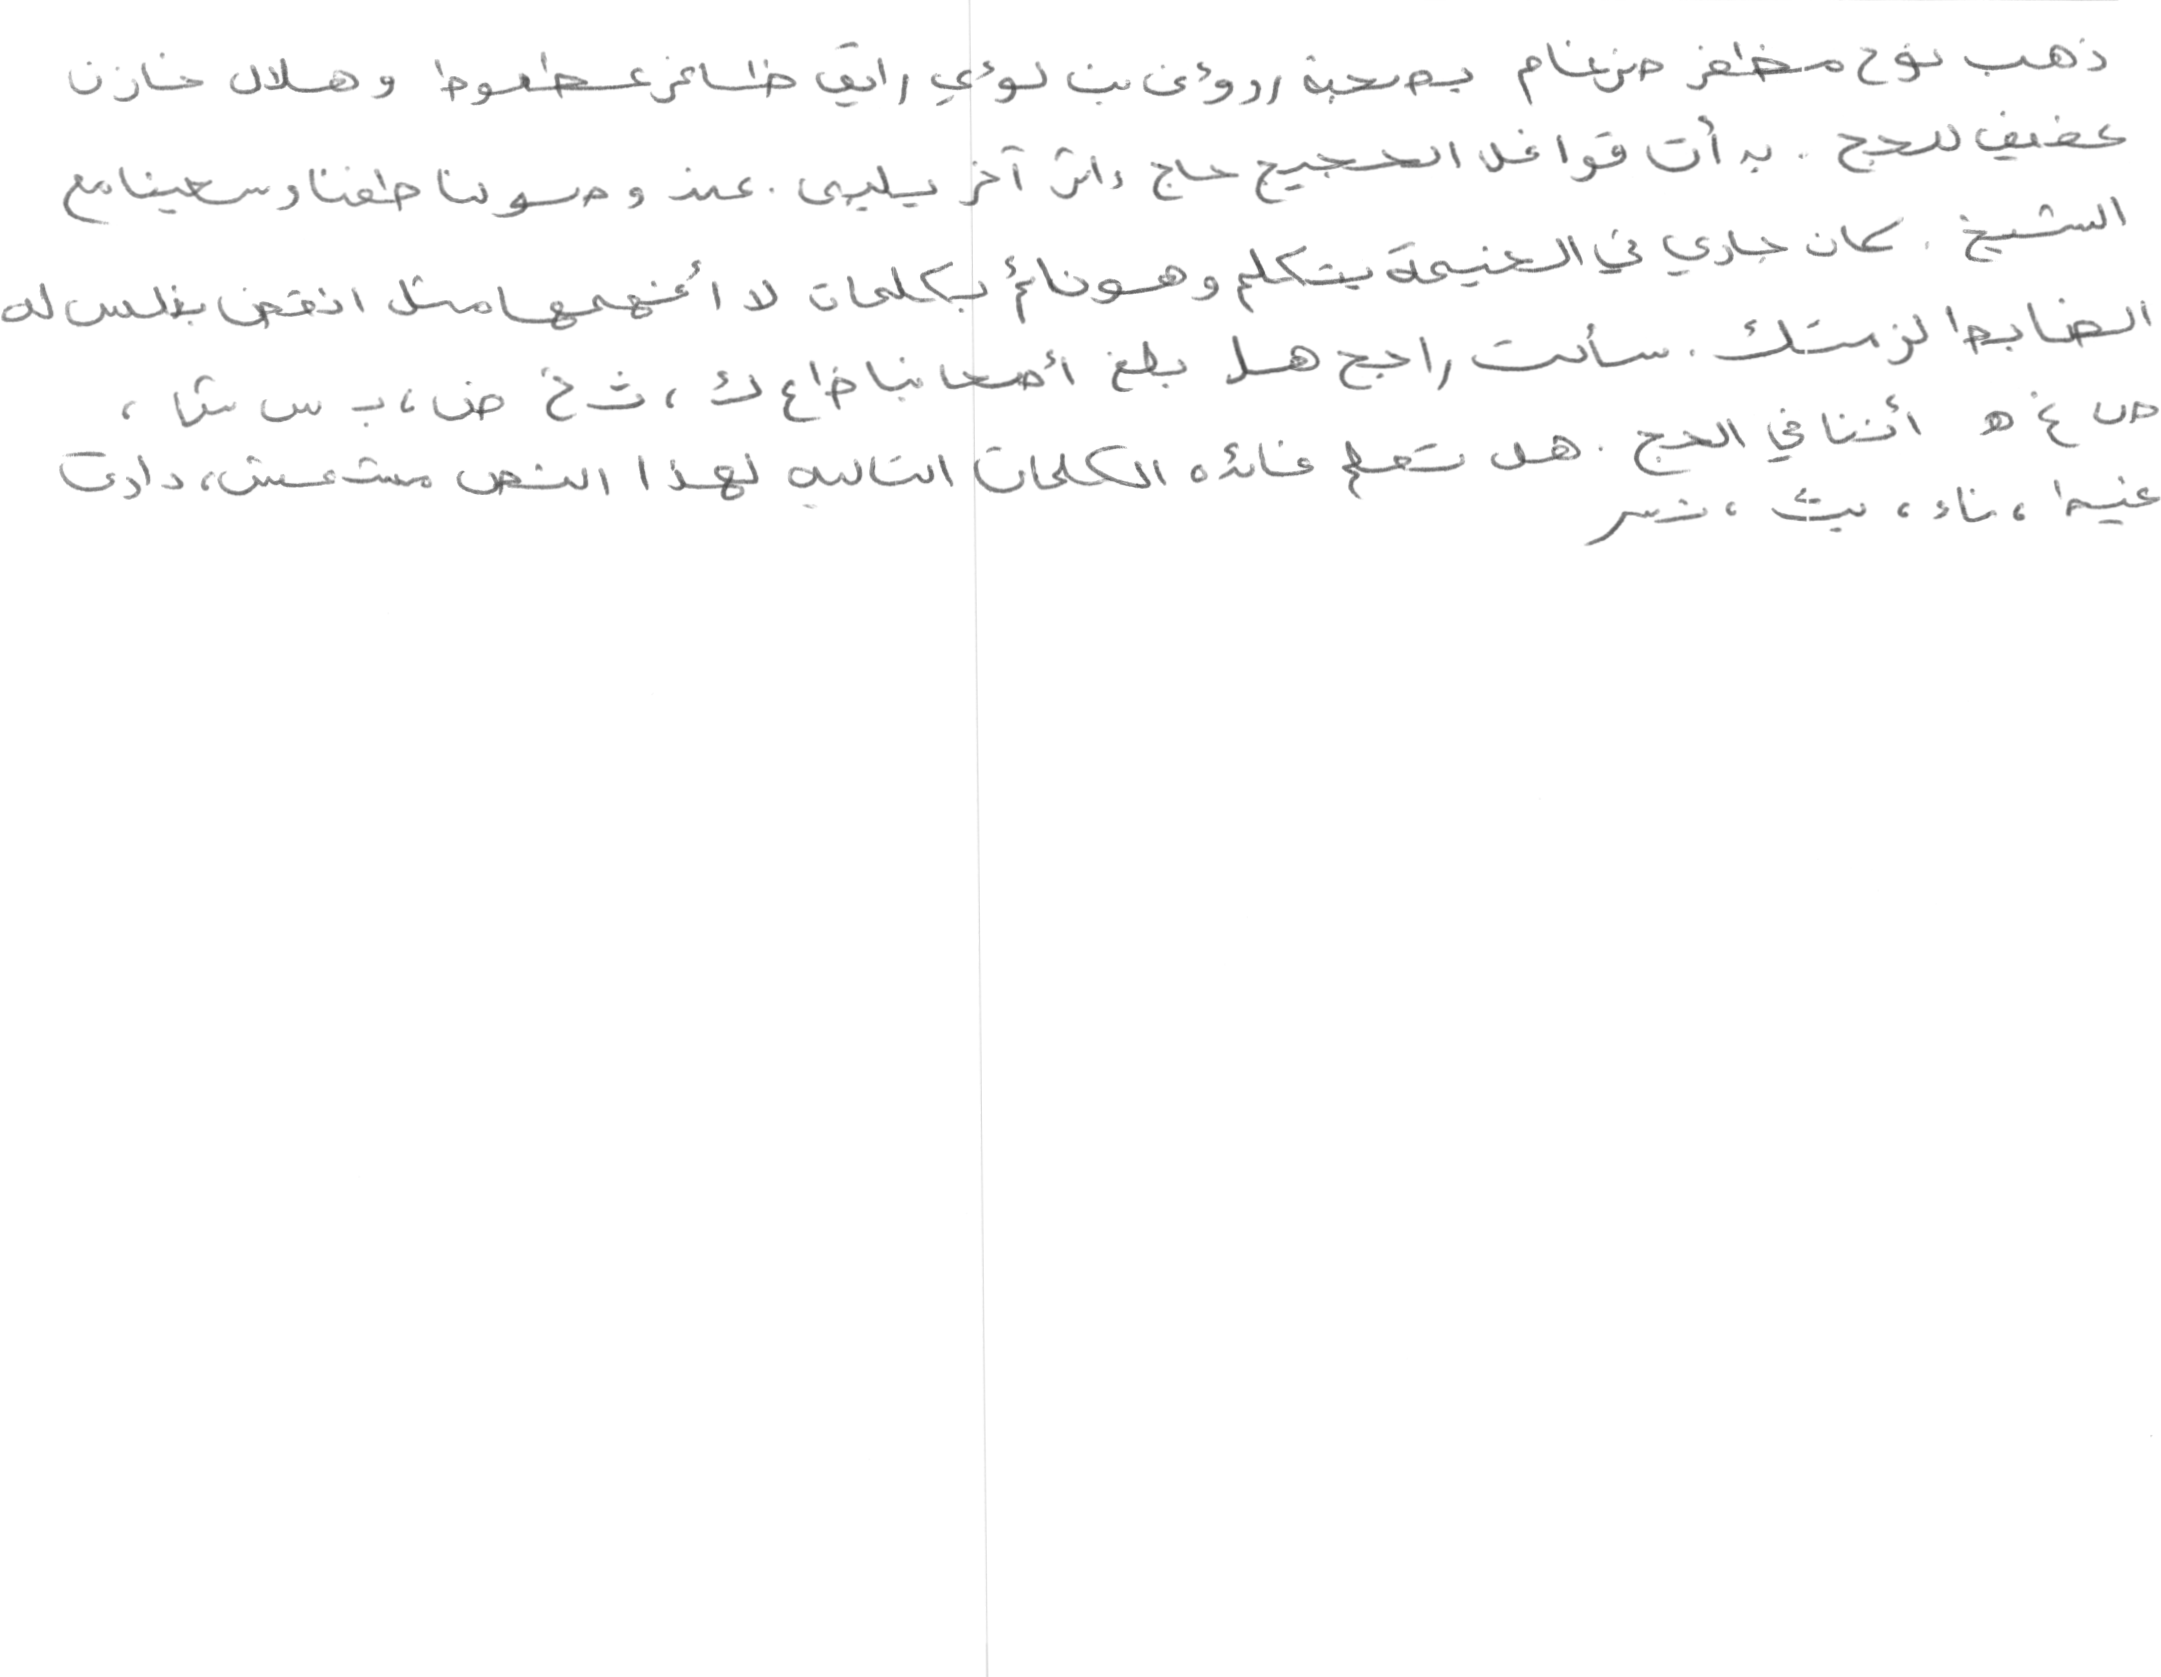 ذهب نوح مظفر ضرغام بصحبة رؤوف بن لؤي رائق ظافر عطعوط وهلال خازن
عفيف للحج . بدأت قوافل الحجيج حاج داثر آخر يلبي . عند وصولنا طفنا وسعينا مع
الشيخ . كان جاري في الخيمة يتكلم وهو نائم بكلمات لا أفهمها مثل انقض بغلس له
الضابط لزمتك . سألت راجح هل بلغ أصحابنا ظ ع ك ، ث خ ض ، ب س ش ،
ص غ ه أننا في الحج . هل تعلم فائده الكلمات التاليه لهذا النص مشمش ، دادى
غيط ، ناء ، بث ، نسر